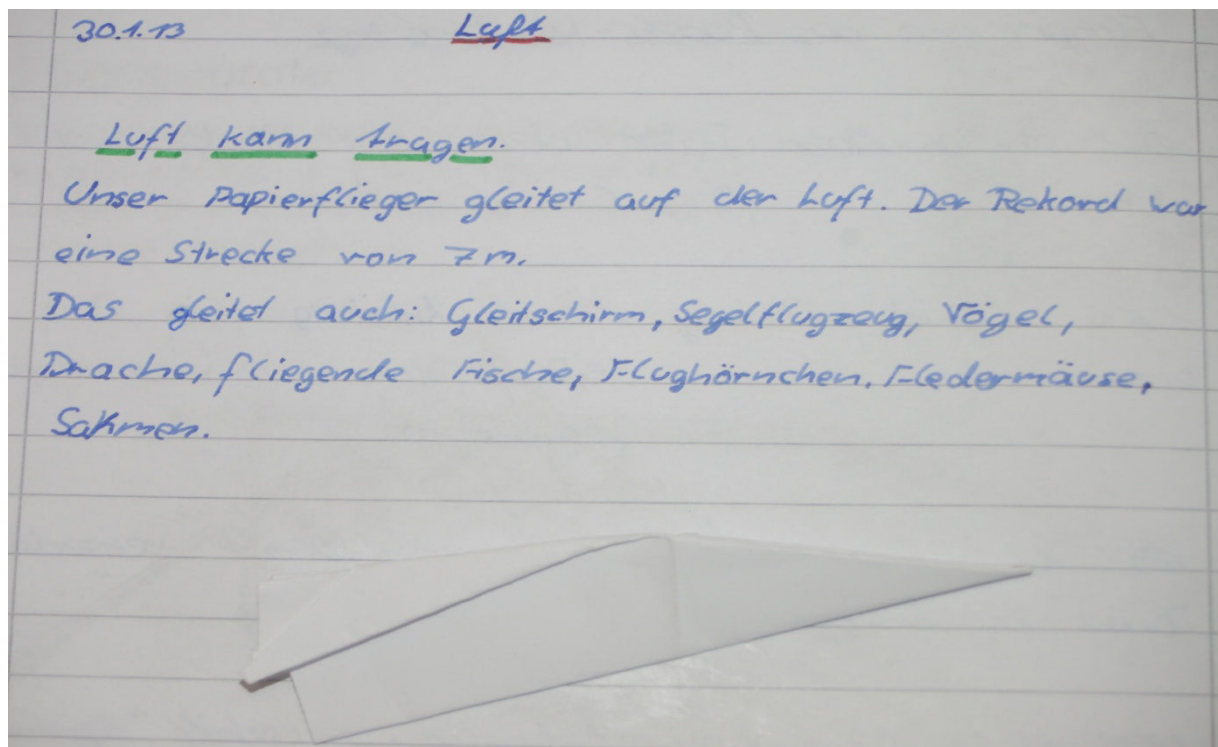 30.1.13 Luft
Luft kann tragen.
Unser Papierflieger gleitet auf der Luft. Der Rekord war
eine Strecke von 7m.
Das gleitet auch: Gleitschirm, Segelflugzeug, Vögel,
Drache, fliegende Fische, Flughörnchen, Fledermäuse,
Sahmen.